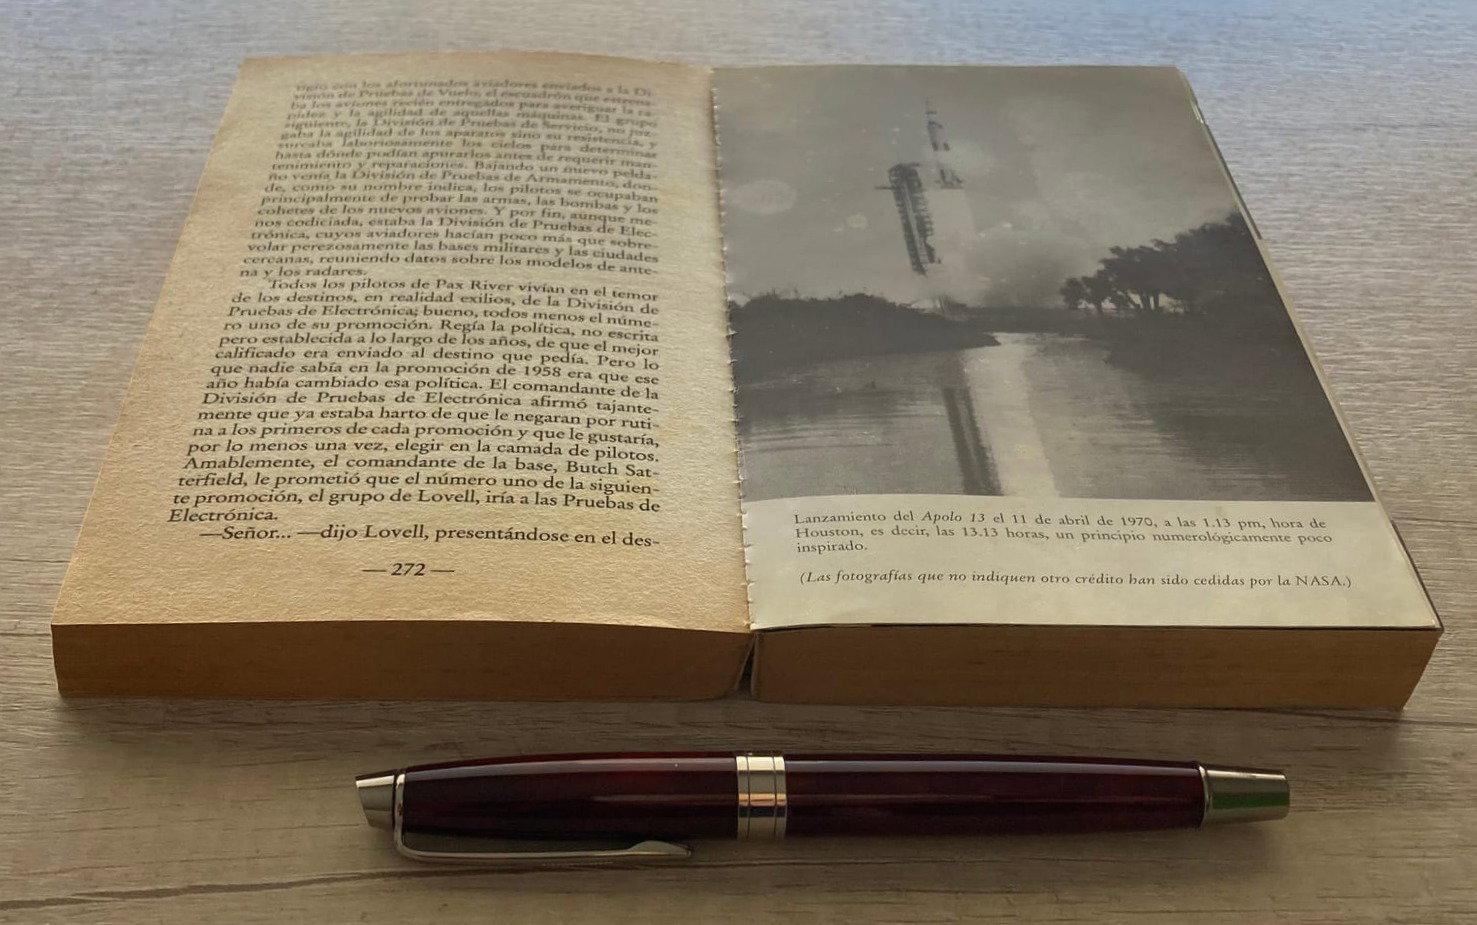 tigio con los afortunados aviadores enviados a la Di-
visión de Pruebas de Vuelo, el escuadrón que estrena-
ba los aviones recién entregados para averiguar la ra-
pidez y la agilidad de aquellas máquinas. El grupo
siguiente, la División de Pruebas de Servicio, no juz-
gaba la agilidad de los aparatos sino su resistencia, y
surcaba laboriosamente los cielos para determinar
hasta dónde podían apurarlos antes de requerir man-
tenimiento y reparaciones. Bajando un nuevo pelda-
ño venía la División de Pruebas de Armamento, don-
de, como su nombre indica, los pilotos se ocupaban
principalmente de probar las armas, las bombas y los
cohetes de los nuevos aviones. Y por fin, aunque me-
nos codiciada, estaba la División de Pruebas de Elec-
trónica, cuyos aviadores hacían poco más que sobre-
volar perezosamente las bases militares y las ciudades
cercanas, reuniendo datos sobre los modelos de ante-
na y los radares.
Todos los pilotos de Pax River vivían en el temor
de los destinos, en realidad exilios, de la División de
Pruebas de Electrónica; bueno, todos menos el núme-
ro uno de su promoción. Regía la política, no escrita
pero establecida a lo largo de los años, de que el mejor
calificado era enviado al destino que pedía. Pero lo
que nadie sabía en la promoción de 1958 era que ese
año había cambiado esa política. El comandante de la
División de Pruebas de Electrónica afirmó tajante-
mente que ya estaba harto de que le negaran por ruti-
na a los primeros de cada promoción y que le gustaría,
por lo menos una vez, elegir en la camada de pilotos.
Amablemente, el comandante de la base, Butch Sat-
terfield, le prometió que el número uno de la siguien-
te promoción, el grupo de Lovell, iría a las Pruebas de
Electrónica.
—Señor... —dijo Lovell, presentándose en el des-
— 272 —
Lanzamiento del Apolo 13 el 11 de abril de 1970, a las 1.13 pm, hora de
Houston, es decir, las 13.13 horas, un principio numerológicamente poco
inspirado.
(Las fotografías que no indiquen otro crédito han sido cedidas por la NASA.)